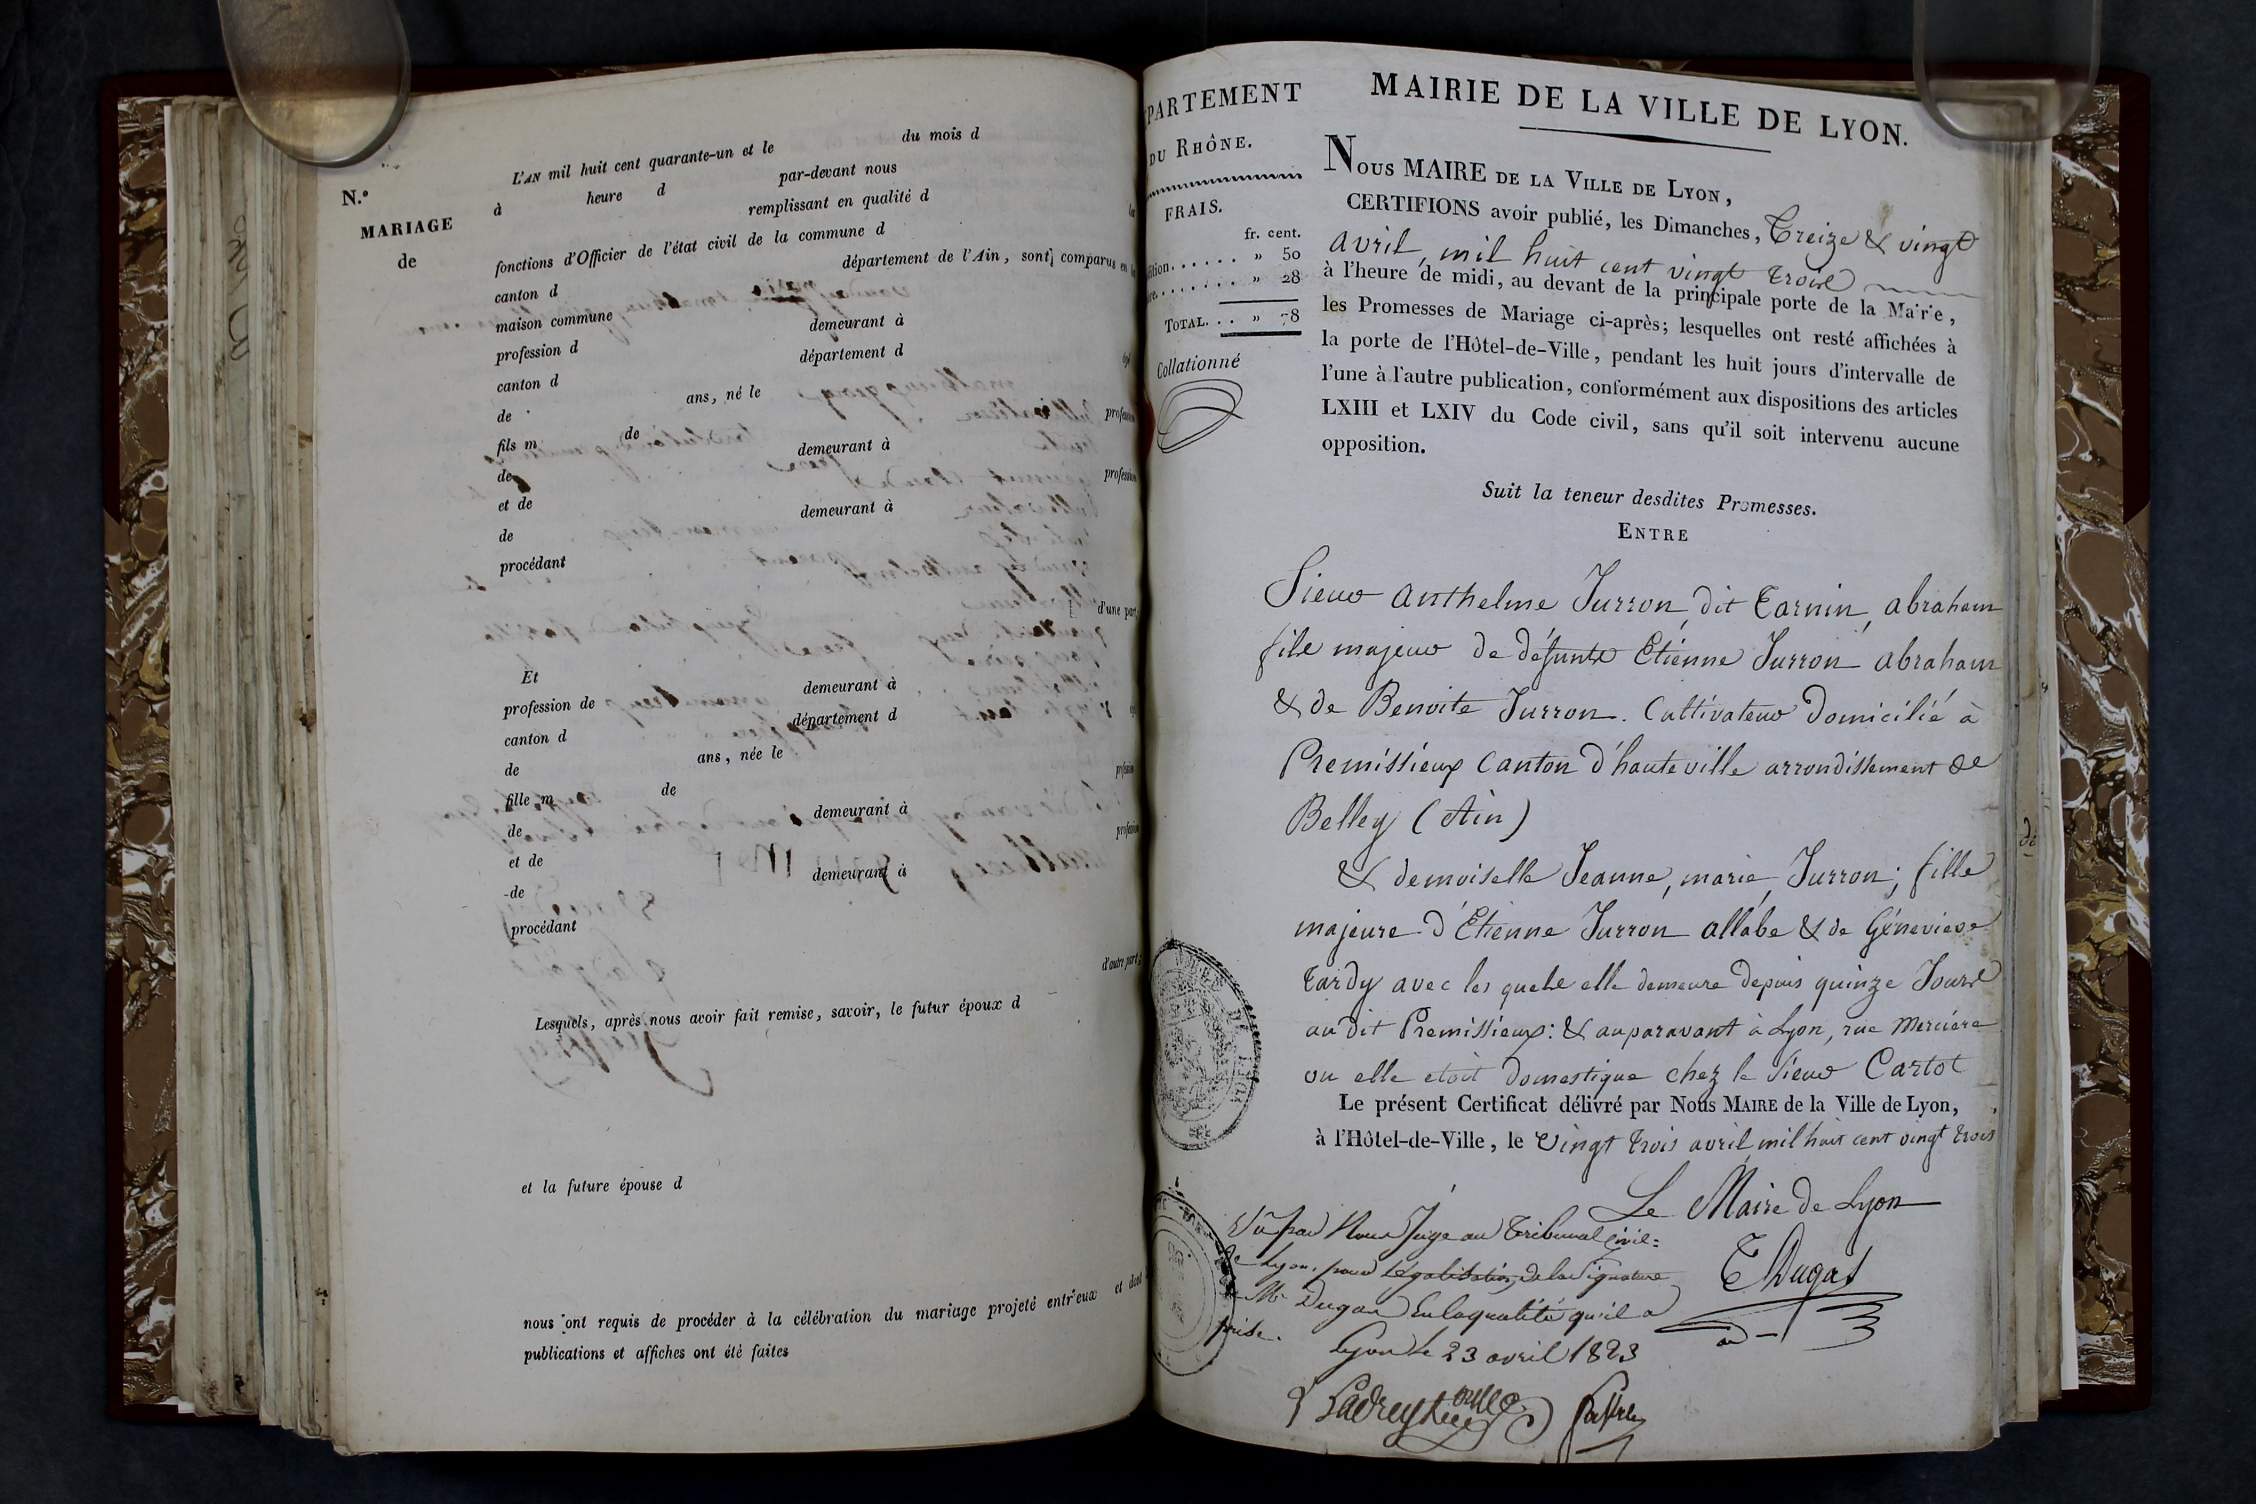 N.o
MARIAGE
de
L'AN mil huit cent quarante-un et le du mois d
à heure d par-devant nous
remplissant en qualité d
fonctions d'Officier de l'état civil de la commune d
canton d département de l'Ain, sont comparus en
maison commune
profession d demeurant à
canton d département d
de ans, né le
fils m de profession
de demeurant à
et de profession
de demeurant à
procédant
d'une part
Et
profession de demeurant à
canton d département d
de ans, née le
fille m de profession
de demeurant à
et de profession
de demeurant à
procédant
d'autre part;
Lesquels, après nous avoir fait remise, savoir, le futur époux d
et la future épouse d
nous ont requis de procéder à la célébration du mariage projeté entr'eux et dont
publications et affiches ont été faites
PARTEMENT
DU RHÔNE.
FRAIS.
fr. cent.
dition...... » 50
re........ » 28
TOTAL... » 78
Collationné
MAIRIE DE LA VILLE DE LYON.
NOUS MAIRE DE LA VILLE DE LYON,
CERTIFIONS avoir publié, les Dimanches, Treize & vingt
avril, mil huit cent vingt trois
à l'heure de midi, au devant de la principale porte de la Mairie,
les Promesses de Mariage ci-après; lesquelles ont resté affichées à
la porte de l'Hôtel-de-Ville, pendant les huit jours d'intervalle de
l'une à l'autre publication, conformément aux dispositions des articles
LXIII et LXIV du Code civil, sans qu'il soit intervenu aucune
opposition.
Suit la teneur desdites Promesses.
ENTRE
Sieur Anthelme Jurron, dit Tarnin, abraham
fils majeur de défunts Etienne Jurron abraham
& de Benoite Jurron. Cultivateur domicilié à
Premissieux Canton d'hauteville arrondissement de
Belley (Ain)
& demoiselle Jeanne, marie, Jurron; fille
majeure d'Etienne Jurron allabe & de Génevieve
Tardy avec les quels elle demeure depuis quinze Jours
au dit Premissieux: & auparavant à Lyon, rue Merciere
ou elle etoit domestique chez le sieur Cartot
Le présent Certificat délivré par Nous MAIRE de la Ville de Lyon,
à l'Hôtel-de-Ville, le vingt trois avril mil huit cent vingt trois
Le Maire de Lyon
Vu par Nous Juge au Tribunal Civil
de Lyon, pour Légalisation de la Signature
de Mr Dugas En la qualité qu'il a
prise.
Lyon le 23 avril 1823
T Dugas
ad-